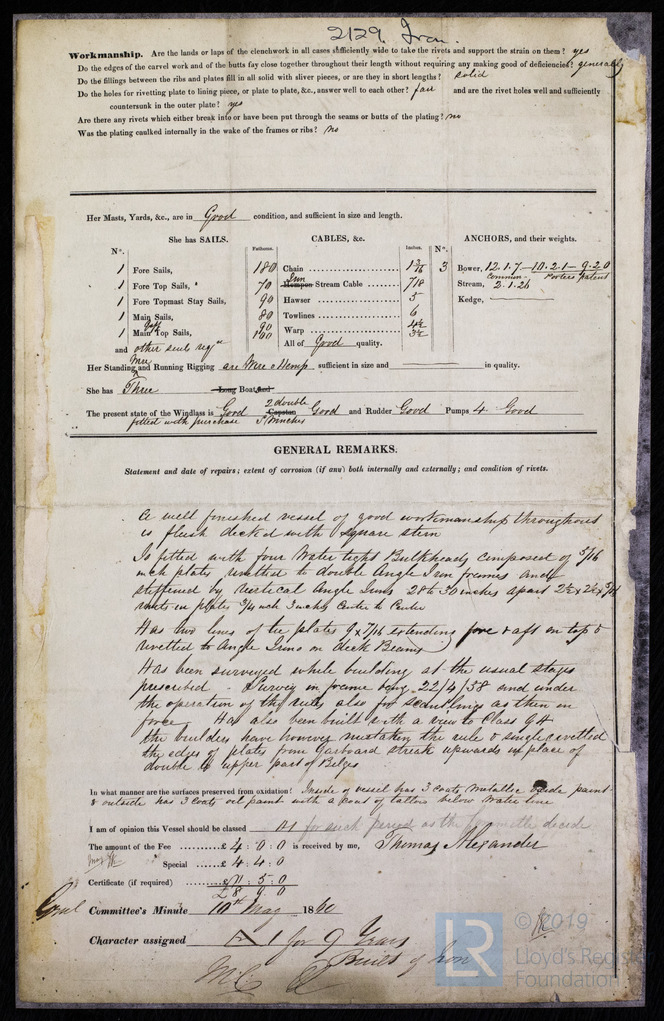 2129 Iron.
Workmanship. Are the lands or laps of the clenchwork in all cases sufficiently wide to take the rivets and support the strain on them? yes
Do the edges of the carvel work and of the butts fay close together throughout their length without requiring any making good of deficiencies? generally
Do the fillings between the ribs and plates fill in all solid with sliver pieces, or are they in short lengths? solid
Do the holes for rivetting plate to lining piece, or plate to plate, &c., answer well to each other? fair and are the rivet holes well and sufficiently
countersunk in the outer plate? yes
Are there any rivets which either break into or have been put through the seams or butts of the plating? no
Was the plating caulked internally in the wake of the frames or ribs? no
Her Masts, Yards, &c., are in Good condition, and sufficient in size and length.
She has SAILS. CABLES, &c. ANCHORS, and their weights.
N°. Fathoms. Inches. N°.
1 Fore Sails, 180 Chain 3 Bower, 12.1.7 - 10.2.1 - 9.2.0
Common Porters patent
1 Fore Top Sails, 70 Iron Hempen Stream Cable 7/8 Stream, 2.1.26
1 Fore Topmast Stay Sails, 90 Hawser 5 Kedge,
1 Main Sails, 80 Towlines 6
1 Main Gaff Top Sails, 90 100 Warp
and other sails reqd All of Good quality.
Her Standing and Running Rigging are Wire & Hemp sufficient in size and in quality.
She has Three Long Boat and
The present state of the Windlass is Good 2 double Capstan Good and Rudder Good Pumps 4 Good
fitted with purchase Winches
GENERAL REMARKS.
Statement and date of repairs; extent of corrosion (if any) both internally and externally; and condition of rivets.
A well finished vessel of good workmanship throughout
is flush decked with square stern
Is fitted with four Water tight Bulkheads composed of 5/16
inch plates rivetted to double Angle Iron frames and
stiffened by vertical Angle Irons 28 to 30 inches apart 2½ x 2½ x 5/16
rivets in plates 3/4 inch 3 inches Center to Center
Has two lines of tie plates 9 x 7/16 extending fore & aft on top &
rivetted to Angle Irons on deck Beams
Has been surveyed while building at the usual stages
prescribed - Survey in frame 22/4/58 and under
the operation of the rules also for scantlings as then in
force. Has also been built with a view to Class 9A
the builders have however mistaken the rule & single rivetted
the edges of plates from Garboard streak upwards in place of
double to upper part of Bilges
In what manner are the surfaces preserved from oxidation? Inside of vessel has 3 coats metallic oxide paint
& outside has 3 coats oil paint with a coat of tallow below Water line
I am of opinion this Vessel should be classed A1 for such period as the Committee decide
The amount of the Fee £ 4 : 0 : 0 is received by me, Thomas Alexander
Special £ 4 : 4 : 0
Certificate (if required) : 5 : 0
£ 8 9 0
Committee's Minute 10th May 1860
Character assigned A 1 for 9 Years
Built of Iron
LR
© 2019
Lloyd's Register
Foundation